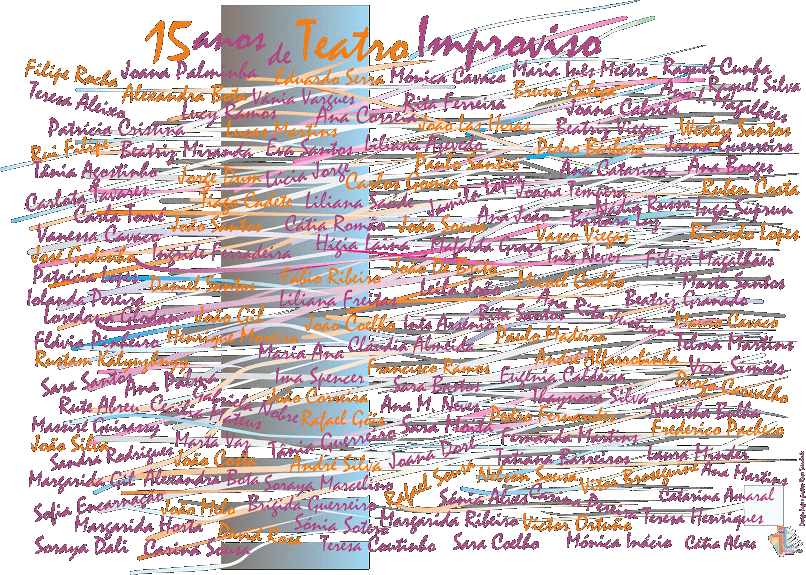 15 anos de Teatro Improviso
Filipe Rocha Joana Palminha Eduardo Serra Mónica Cavaco Maria Inês Mestre Raquel Cunha
Teresa Aleixo Alexandra Bota Vânia Vargues Rita Ferreira Bruno Ana Raquel Silva
Lucy Ramos Ana Correia Joana Cabrita Magalhães
Patrícia Cristina Lucas Martins João Las Heras Beatriz Viegas Wesley Santos
Rui Filipe Beatriz Miranda Eva Santos Liliana Azevedo Pedro Barbosa Joana Guerreiro
Tânia Agostinho Jorge Dum Lucia Jorge Carlos Gomes Paulo Santos Ana Catarina Ana Borges
Carlota Tavares Tiago Cadete Liliana Saúde Joana Tempera Nádia Russo Ruben Costa
Carla Tomé João Santos Cátia Romão João Sousa Ana João Bárbara Luz Inga Suprun
Vanessa Cavaco Higia Laina Mafalda Graça Vasco Viegas Ricardo Lopes
José Godinho Ingride Ferradeira João De Brito Inês Neves Filipa Magalhães
Patrícia Lopes Daniel Santos Fábio Ribeiro João Miguel Coelho Marta Santos
Iolanda Pereira Liliana Freitas Rita Santos Ana Rita Beatriz Granado
João Gil João Coelho Inês Arsénio Mauro Cavaco
Flávia Henrique Maria Ana Cláudia Almeida Paulo Madeira Telma Martins
Rustam Francisco Ramos André Vera Simões
Sara Santos Ana Palma Ima Spencer Sara Bastos Eugénia Caldeira Diogo Carvalho
Rute Abreu Cecília Mateus Gabriela Nobre João Correia Ana M. Neves Thaynara Silva
Rafael Pedro Fernandes Natasha
Massiré Marta Vaz Tânia Guerreiro Sara Fernanda Martins Frederico Pacheco
João Silva Sandra Rodrigues João Costa André Silva Joana Doré Tatiana Barreiros Laura Hinder
Margarida Gil Alexandra Bota Soraya Marcelino Rafael Nelson Sousa Vitor Ana Martins
Sofia Encarnação João Melo Brigida Guerreiro Sónia Alves Corina Pereira Catarina Amaral
Margarida Horta Sónia Margarida Ribeiro Victor Ortuño Teresa Henriques
Soraya Dali Carina Sousa David Rosa Teresa Coutinho Sara Coelho Mónica Inácio Cátia Alves